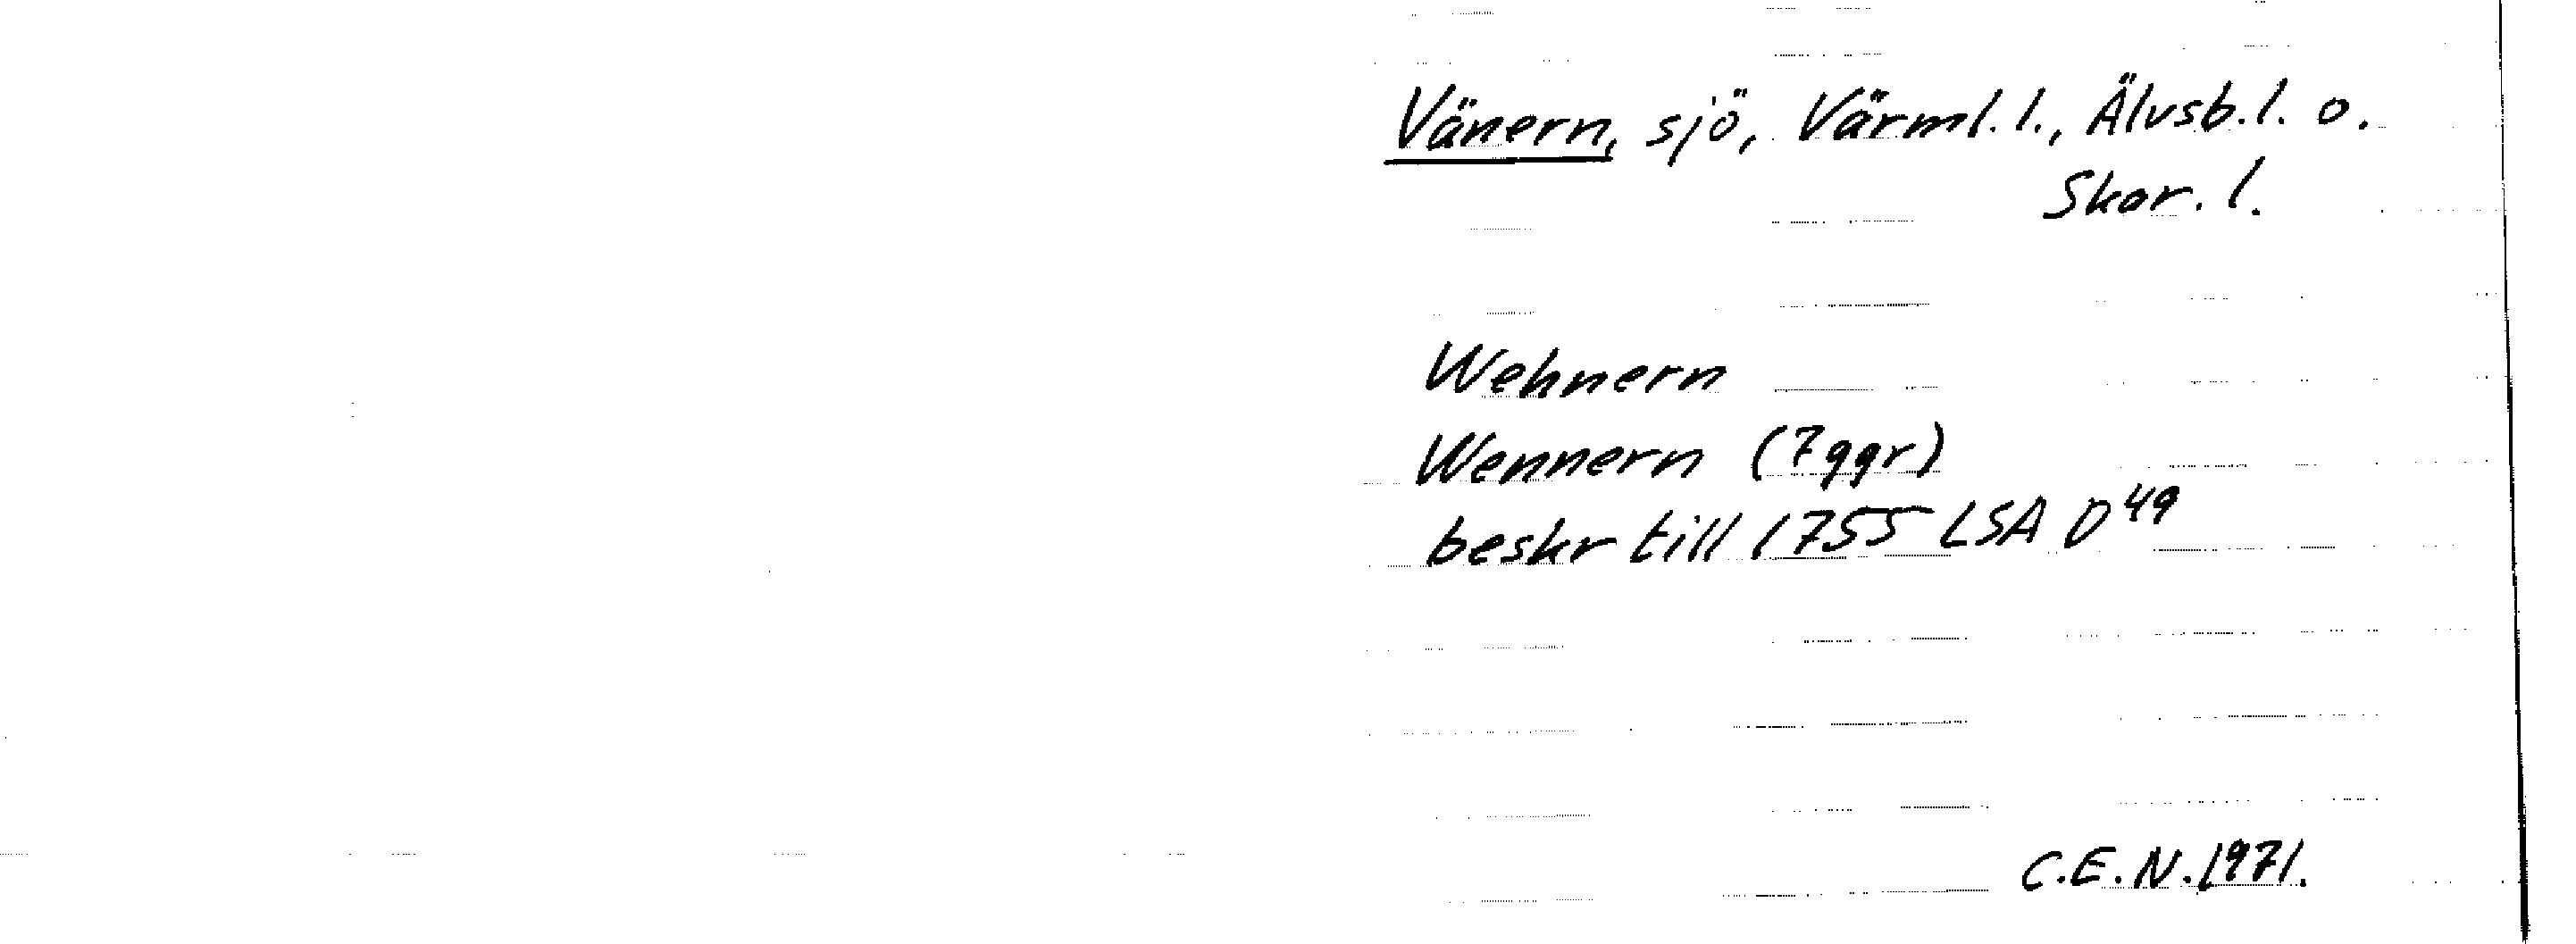 Vänern, sjö, Värml. l., Älvsb. l. o.
Skar. l.
Wehnern
Wennern (7ggr)
beskr till 1755 LSA D49
C.E.N. 1971.